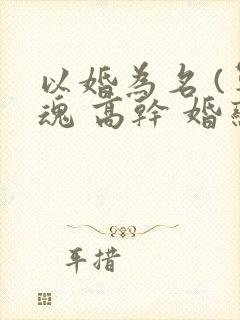 以婚為名(
魂 高幹 婚
耳措